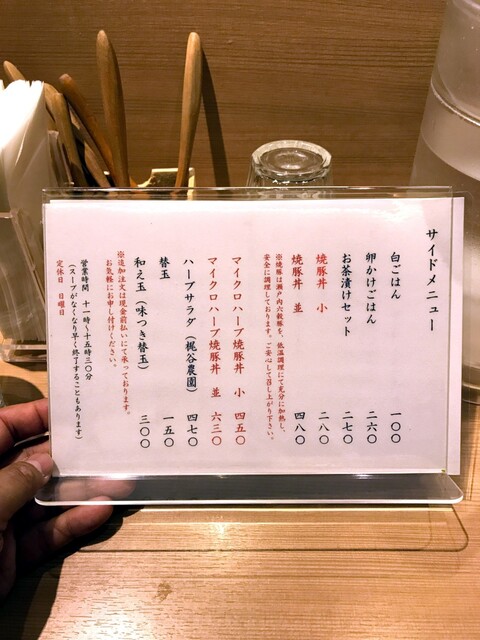 サイドメニュー
白ごはん 一〇〇
卵かけごはん 二六〇
お茶漬けセット 二七〇
焼豚丼 小 二八〇
焼豚丼 並 四八〇
※焼豚は瀬戸内六穀豚を、低温調理にて充分に加熱し、
安全に調理しております。ご安心して召し上がり下さい。
マイクロハーブ焼豚丼 小 四五〇
マイクロハーブ焼豚丼 並 六三〇
ハーブサラダ（梶谷農園） 四七〇
替玉 一五〇
和え玉（味つき替玉） 三〇〇
※追加注文は現金前払いにて承っております。
お気軽にお申し付けください。
営業時間 十一時～十五時三〇分
（スープがなくなり早く終了することもあります）
定休日 日曜日